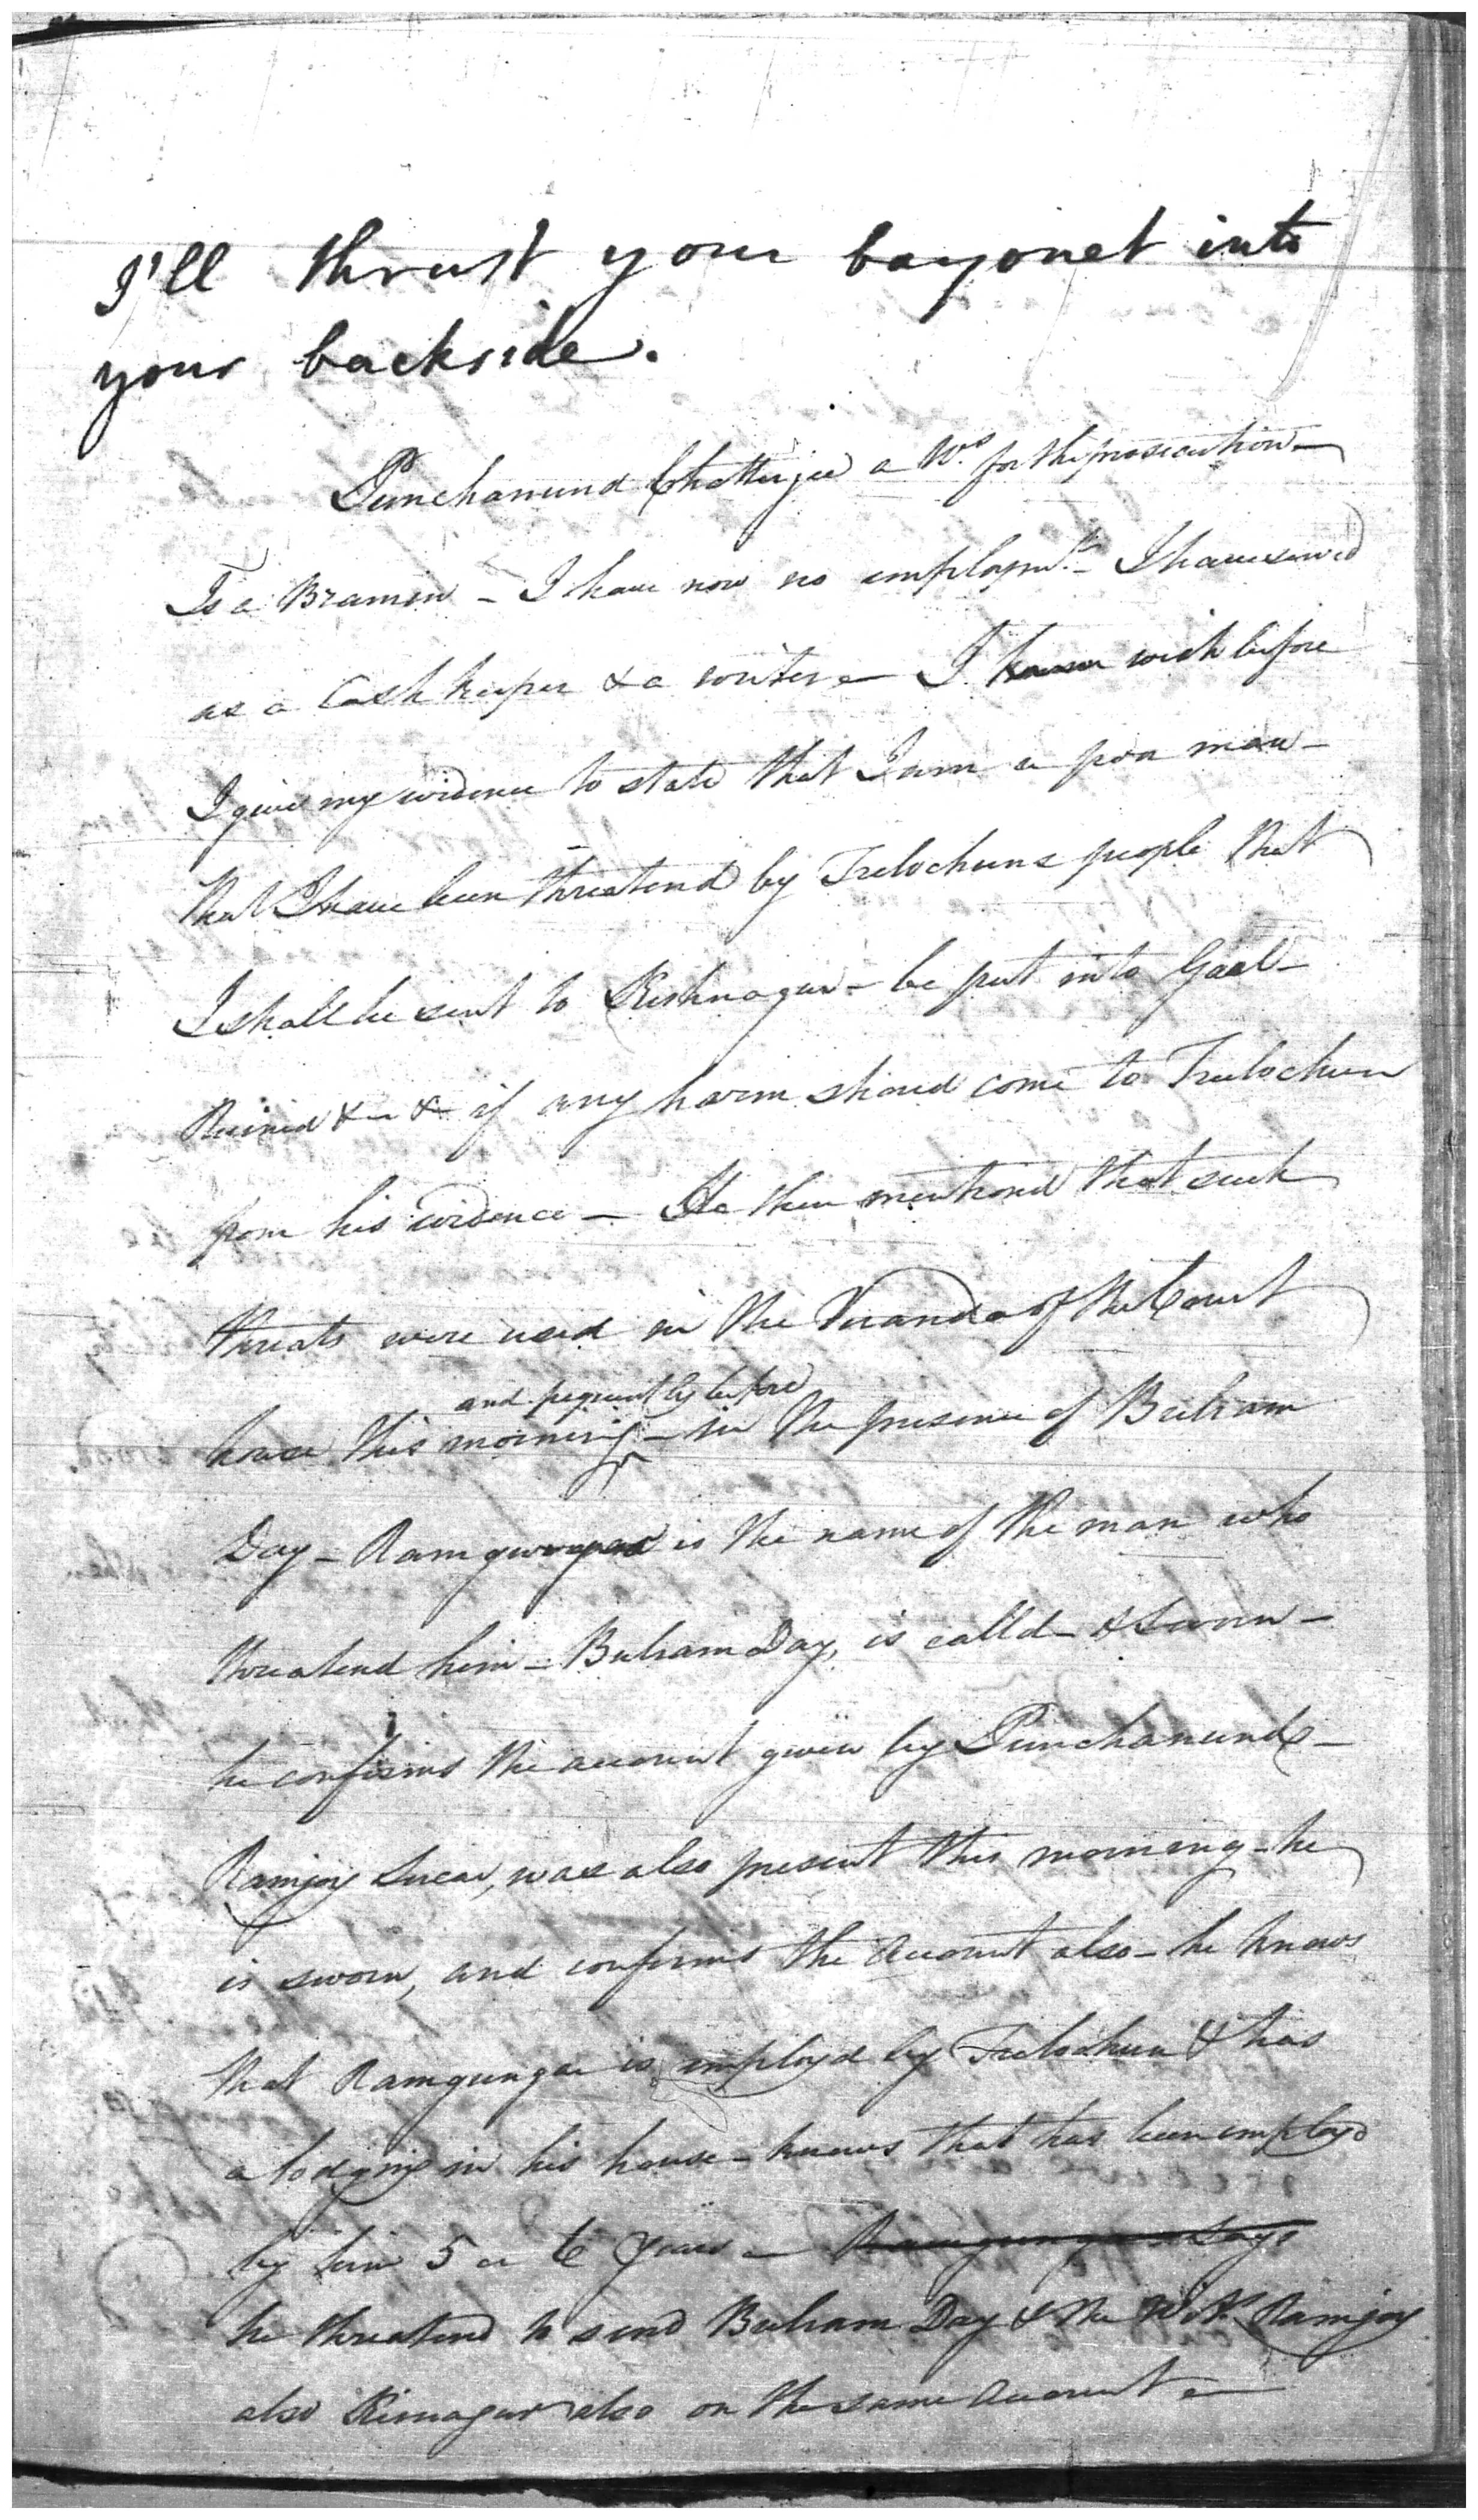 I'll thrust your bayonet into
your backside.
Punchanund Chatterjee a Ws. for the prosecution —
Is a Bramin — I have now no employmt. — I have served
as a Cash keeper & a writer — I wish before
I give my evidence to state that I am a poor man —
that I have been threatend by Trelochuns people that
I shall be sent to Kishnagur — be put into Gaol —
Ruined & — & if any harm should come to Trelochun
from his evidence — He then mentioned that such
threats were used in the Veranda of the Court
and frequently before
house this morning — in the presence of Buliram
Day — is the name of the man who
threatend him — Buliram Day, is calld — & sworn —
he confirms the account given by Punchanund —
Ramjoy, was also present this morning — he
is sworn, and confirms the account also — he knows
that Ramgunga is employd by Trelochun & has
a lodging in his house — knows that has been employd
by him 5 or 6 years — Ramgunga says
he threatend to send Buliram Day & the Wits. Ramjoy
also also on the same account —